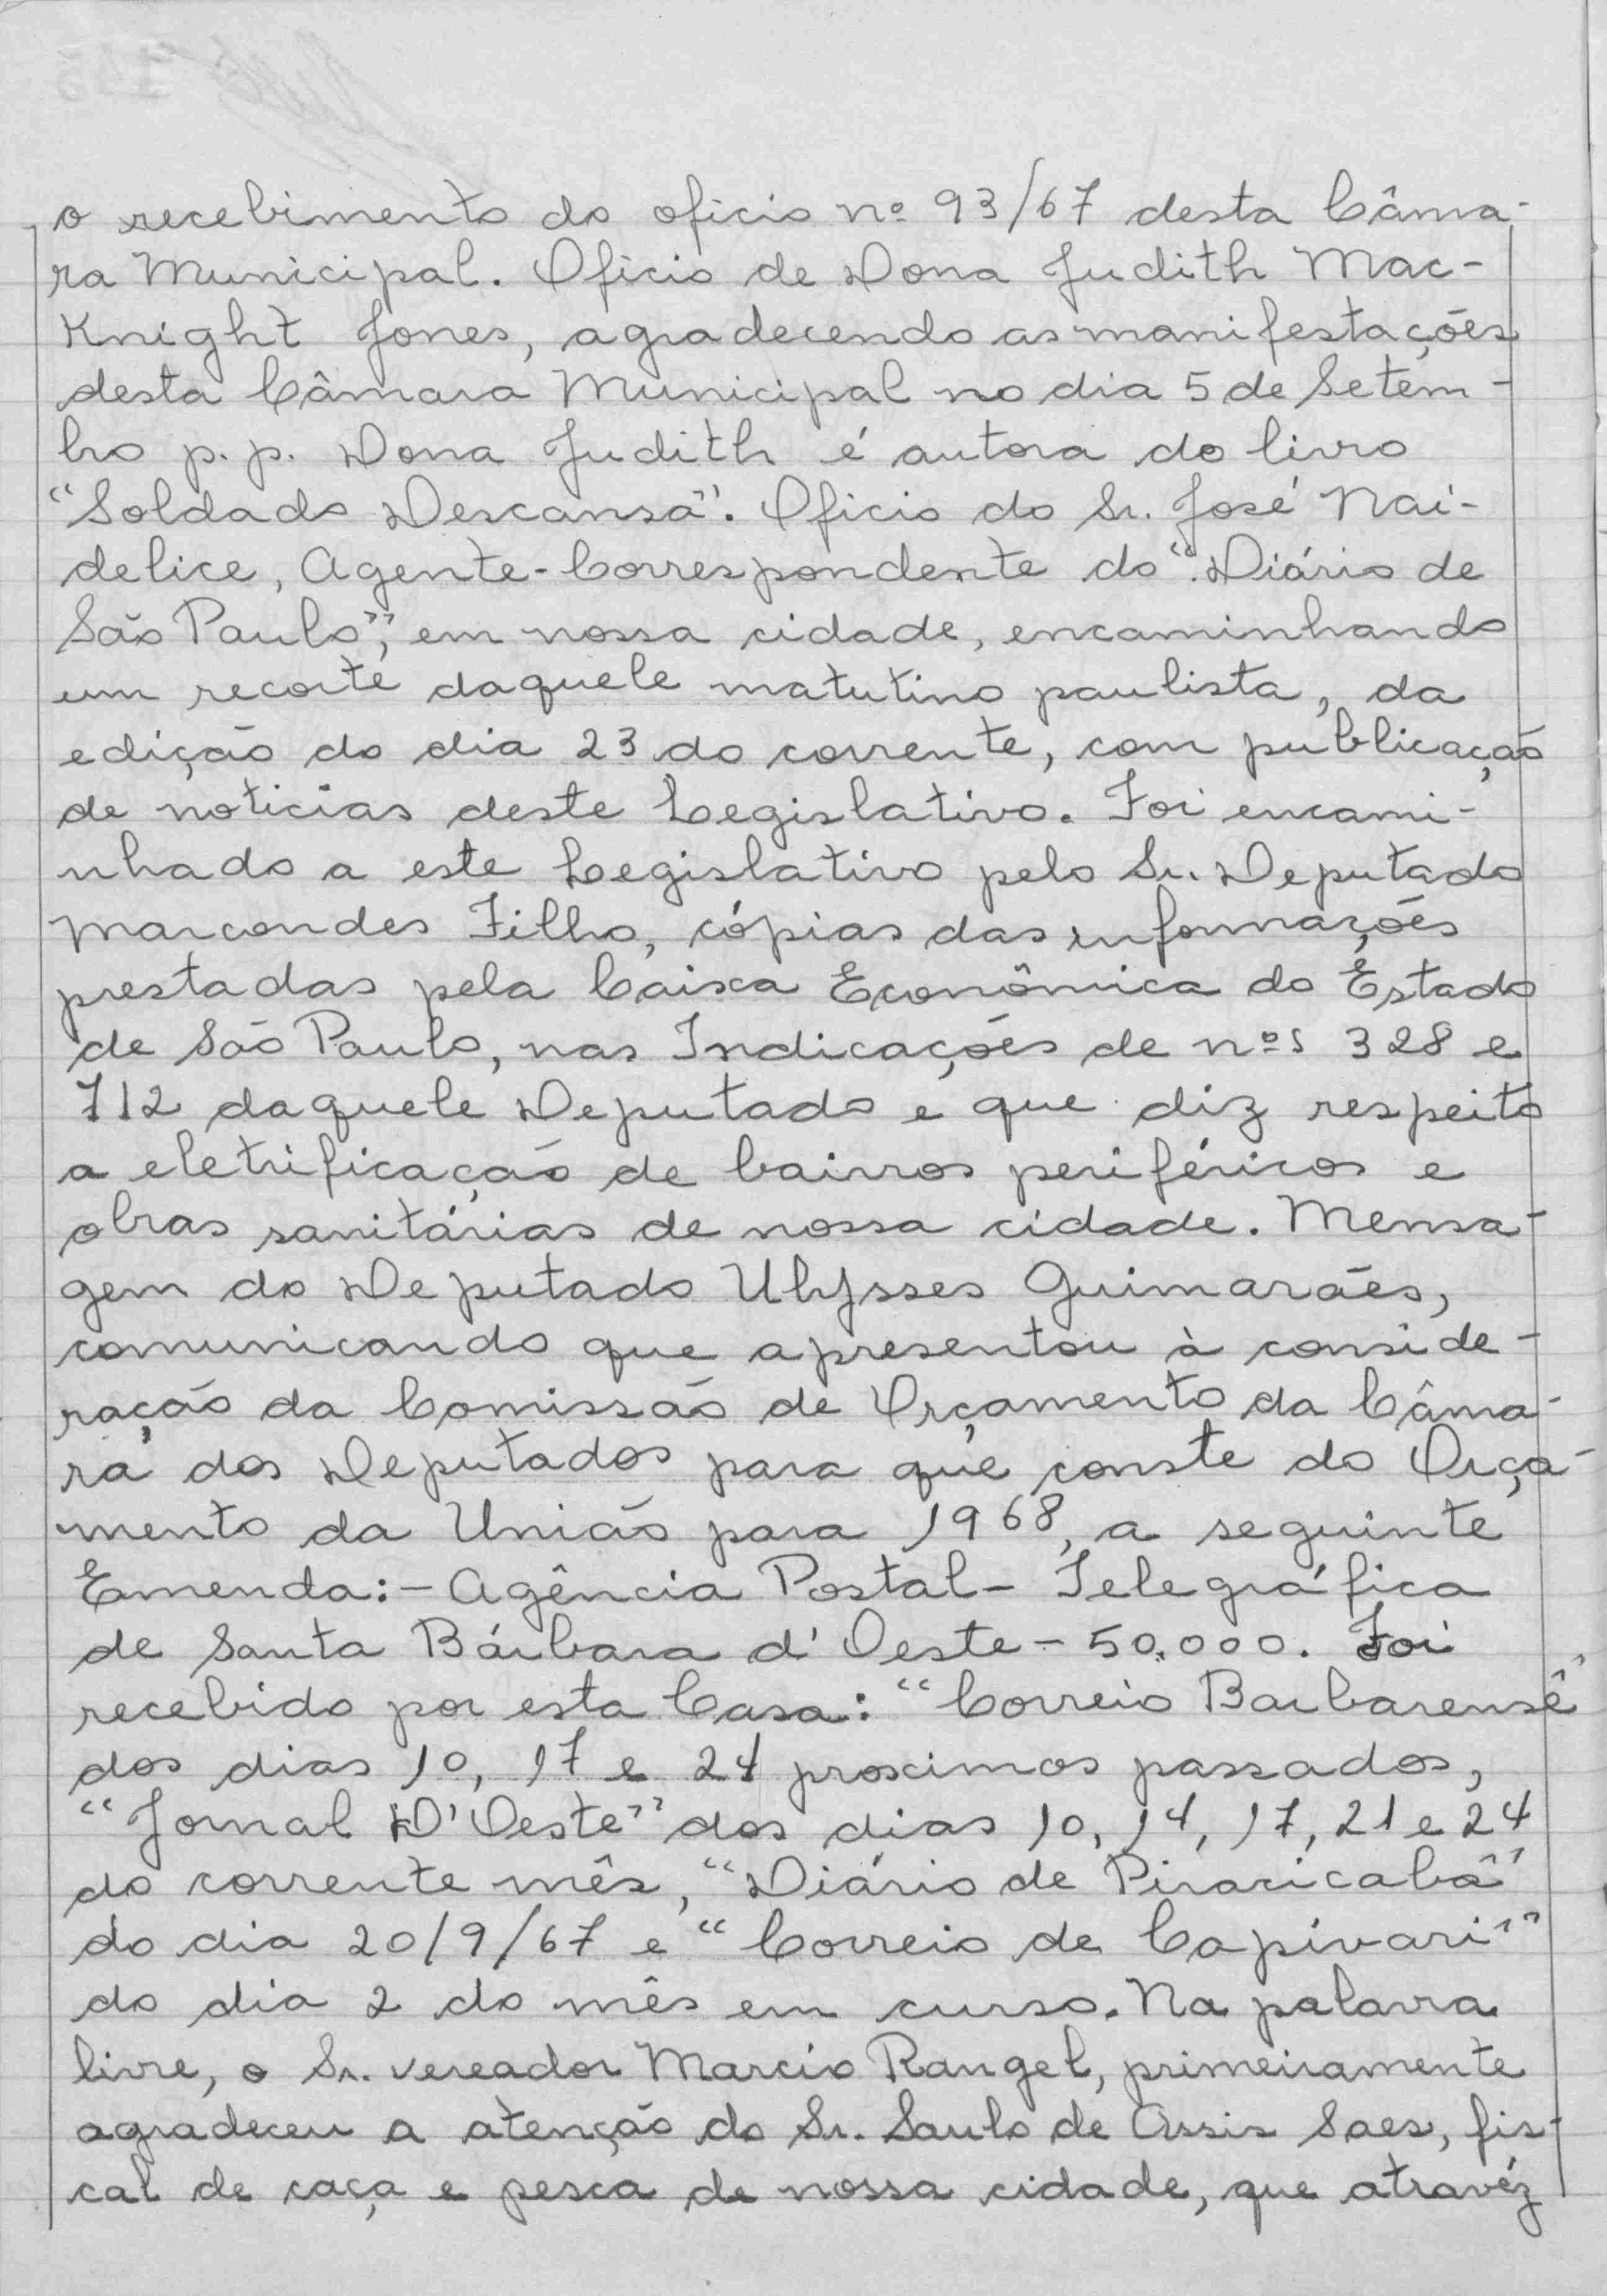 o recebimento do oficio nº 93/67 desta Câma-
ra Municipal. Oficio de Dona Judith Mac-
Knight Jones, agradecendo as manifestações
desta Câmara Municipal no dia 5 de Setem-
bro p.p. Dona Judith é autora do livro
"Soldado Descansa". Oficio do Sr. José Nai-
delice, Agente-Correspondente do "Diário de
São Paulo", em nossa cidade, encaminhando
um recorte daquele matutino paulista, da
edição do dia 23 do corrente, com publicação
de noticias deste Legislativo. Foi encami-
nhado a este Legislativo pelo Sr. Deputado
Marcondes Filho, cópias das informações
prestadas pela Caixa Econômica do Estado
de São Paulo, nas Indicações de nºs 328 e
712 daquele Deputado e que diz respeito
a eletrificação de bairros periféricos e
obras sanitárias de nossa cidade. Mensa-
gem do Deputado Ulysses Guimarães,
comunicando que apresentou à conside-
ração da Comissão de Orçamento da Câma-
ra dos Deputados para que conste do Orça-
mento da União para 1968, a seguinte
Emenda:- Agência Postal- Telegráfica
de Santa Bárbara d'Oeste - 50.000. Foi
recebido por esta Casa: "Correio Barbarense"
dos dias 10, 17 e 24 proximos passados,
"Jornal D'Oeste" dos dias 10, 14, 17, 21 e 24
do corrente mês, "Diário de Piracicaba"
do dia 20/9/67 e "Correio de Capivari"
do dia 2 do mês em curso. Na palavra
livre, o Sr. vereador Marcio Rangel, primeiramente
agradeceu a atenção do Sr. Saulo de Assis Saes, fis-
cal de caça e pesca de nossa cidade, que atravéz